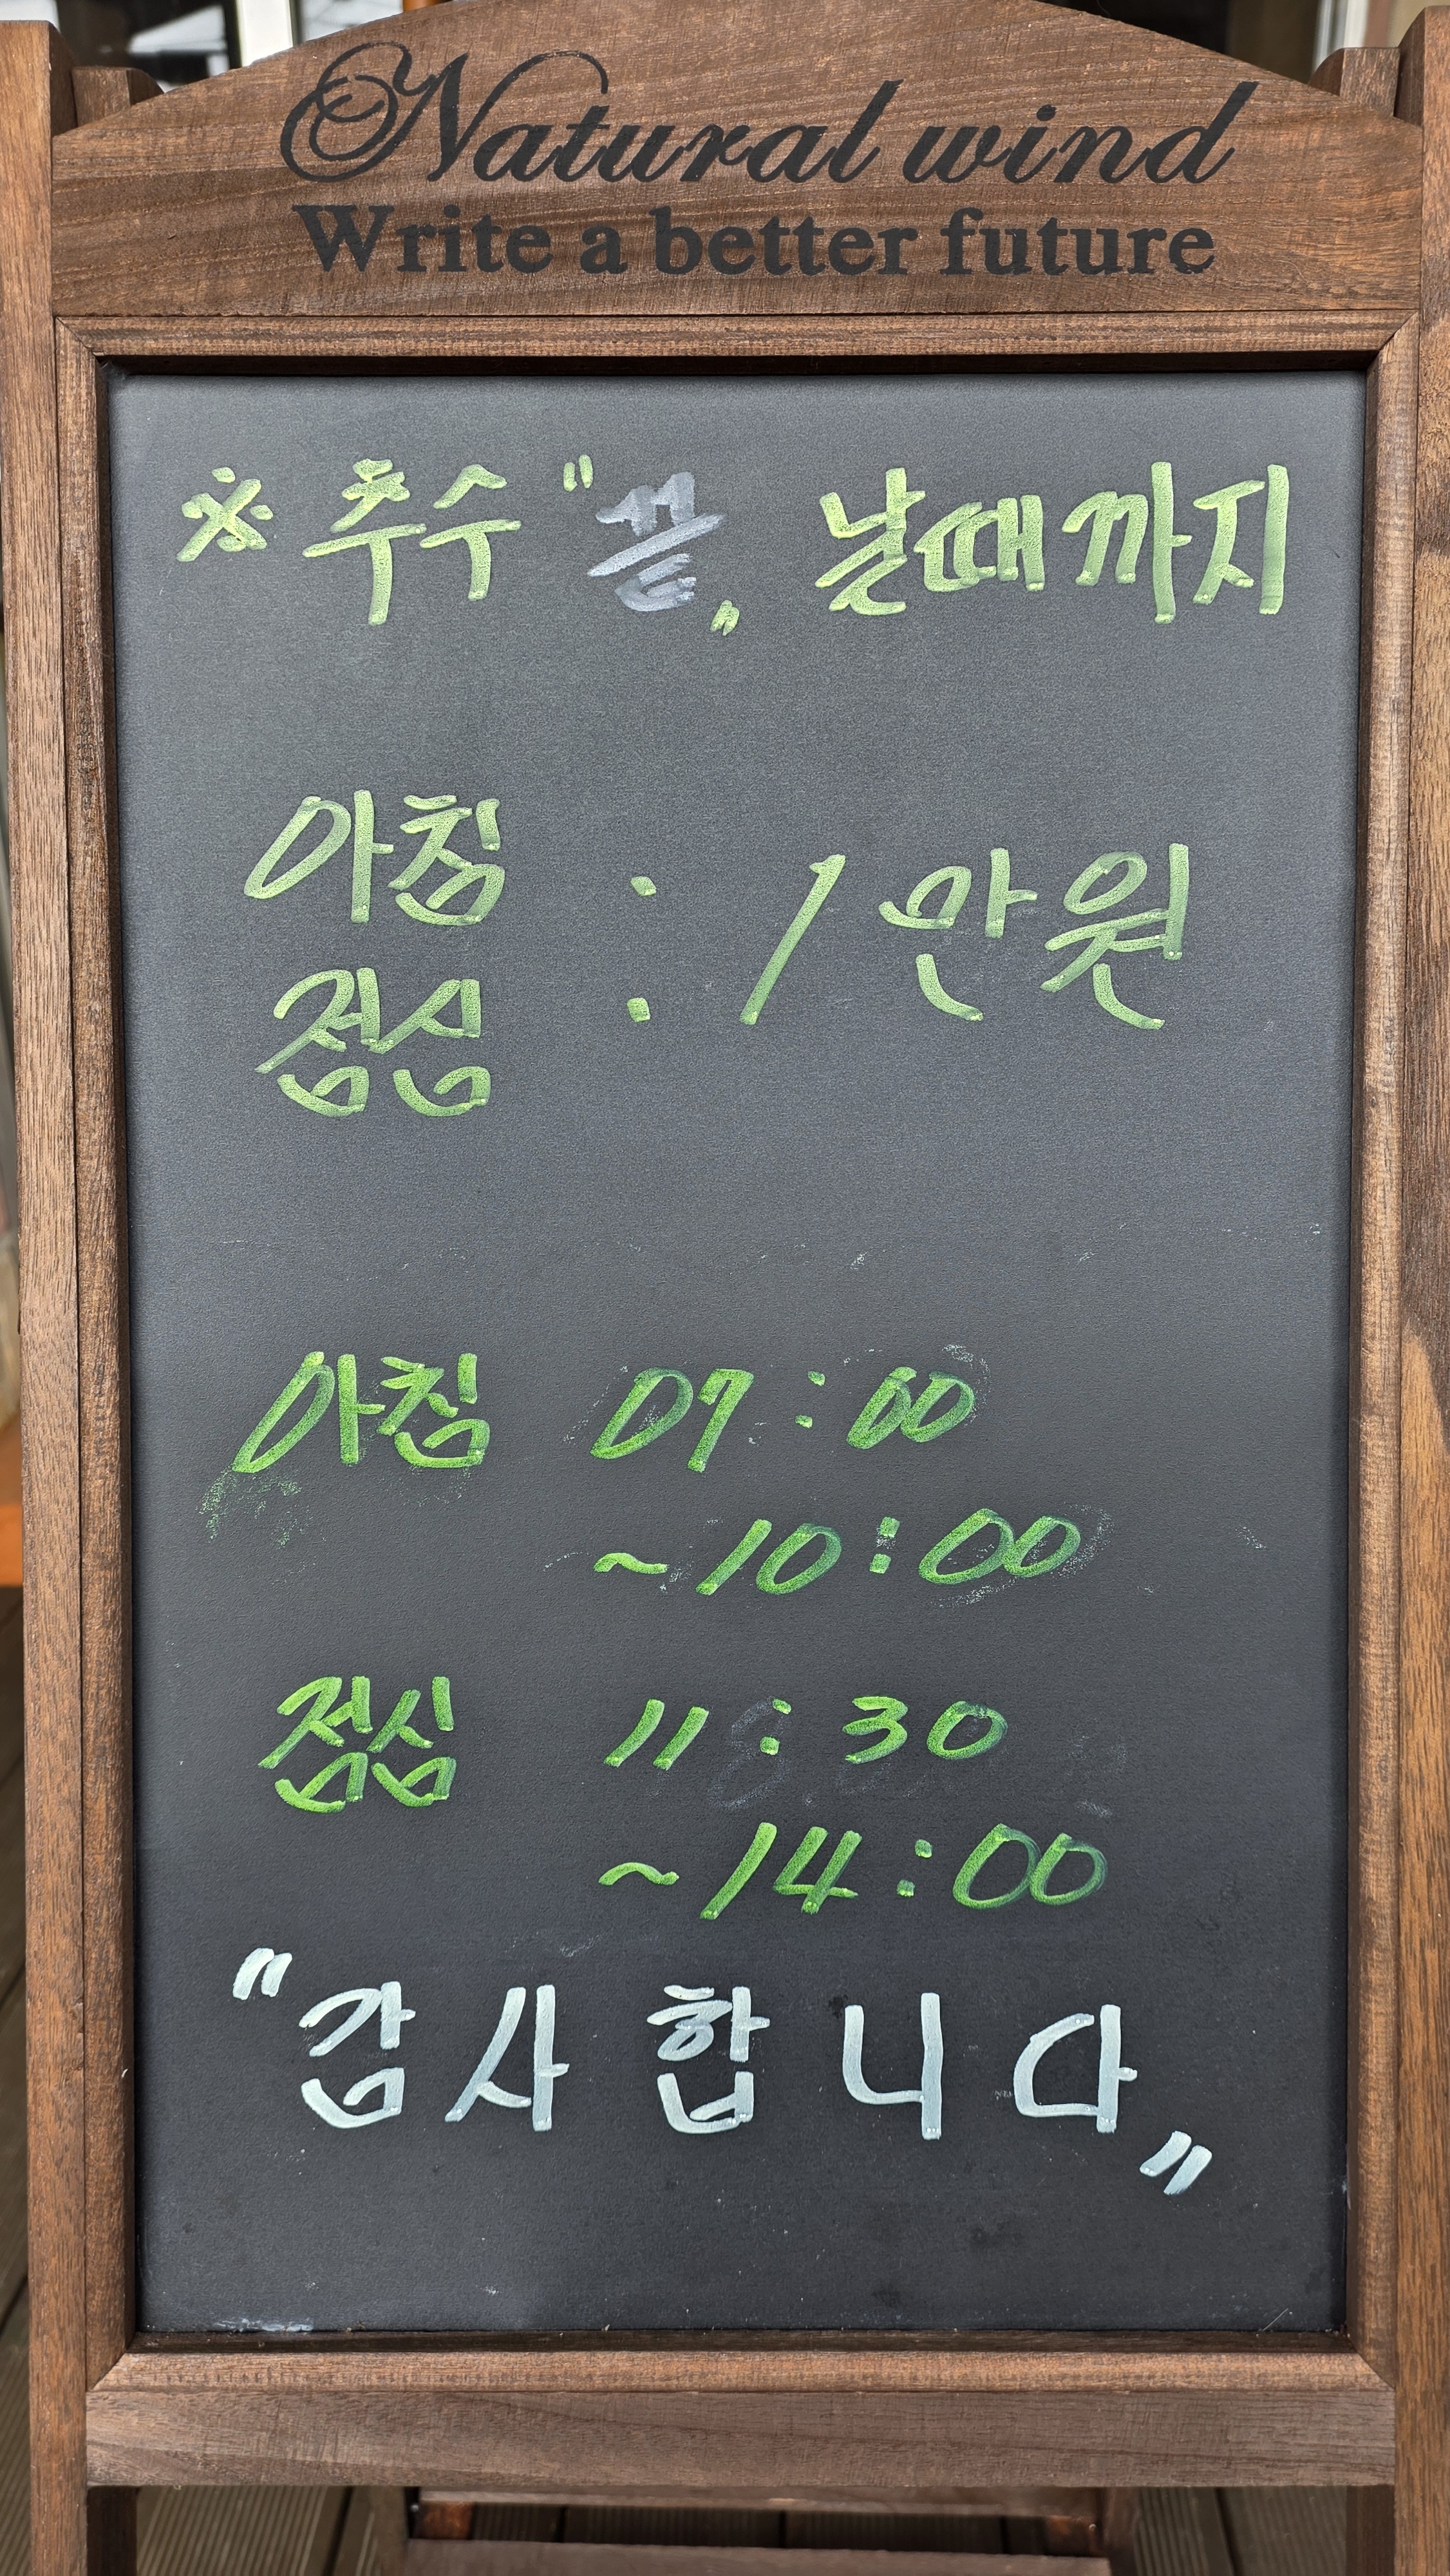 Natural wind
Write a better future
※ 추수 "끝„ 날때까지
아침
점심
: 1만원
아침 07:00
~10:00
점심 11:30
~14:00
"감사합니다„